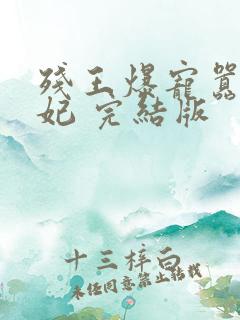 残王爆寵囂
妃 完結版
十三梓白
未经同意禁止转载